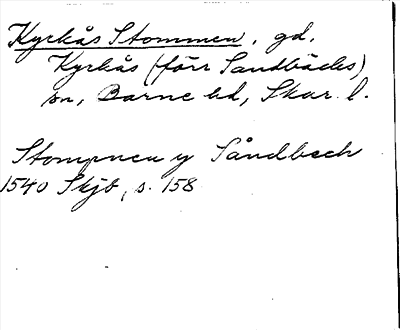 Kyrkås Stommen, gd,
Kyrkås (förr Sandbäcks)
sn, Barne hd, Skar. l.
Stompnen y Sandbech
1540 Skjb, s. 158